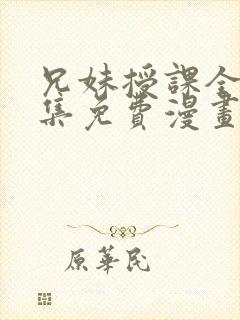 兄妹授課全
集免費漫畫
原華民